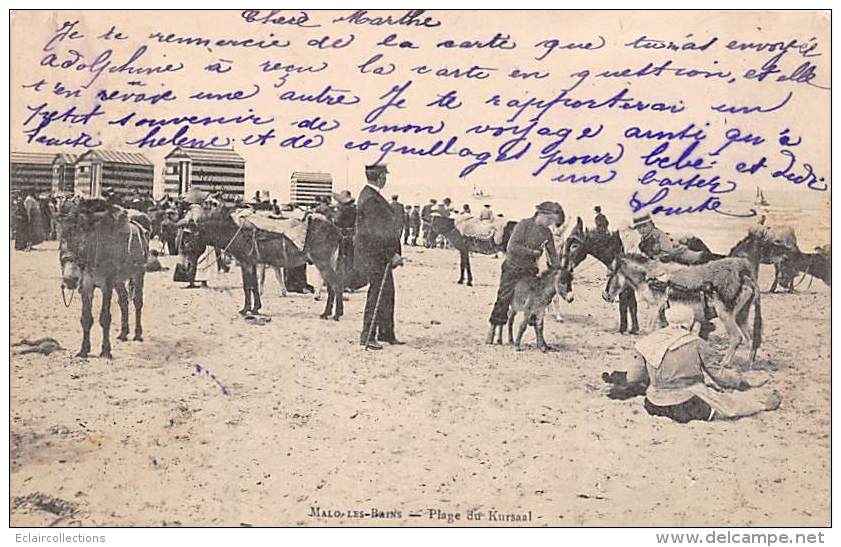 Chere Marthe
Je te remercie de la carte que tu m'as envoyée
Adolphine a reçu la carte en question, et elle
t'en renvoie une autre Je te rapporterai un
petit souvenir de mon voyage ainsi qu'à
tante helene et de coquillages pour bébé et dédé
un baiser
Louise
MALO-LES-BAINS — Plage du Kursaal
Eclaircollections
www.delcampe.net